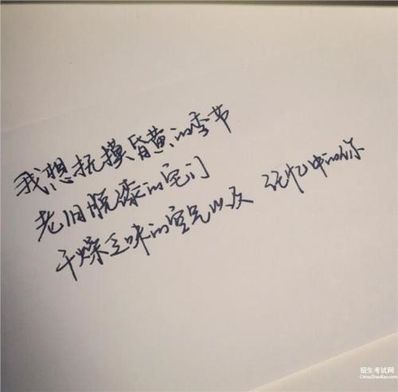 我想抚摸昏黄的季节
老旧脱漆的宅门
干燥乏味的空气以及 记忆中的你
招生考试网